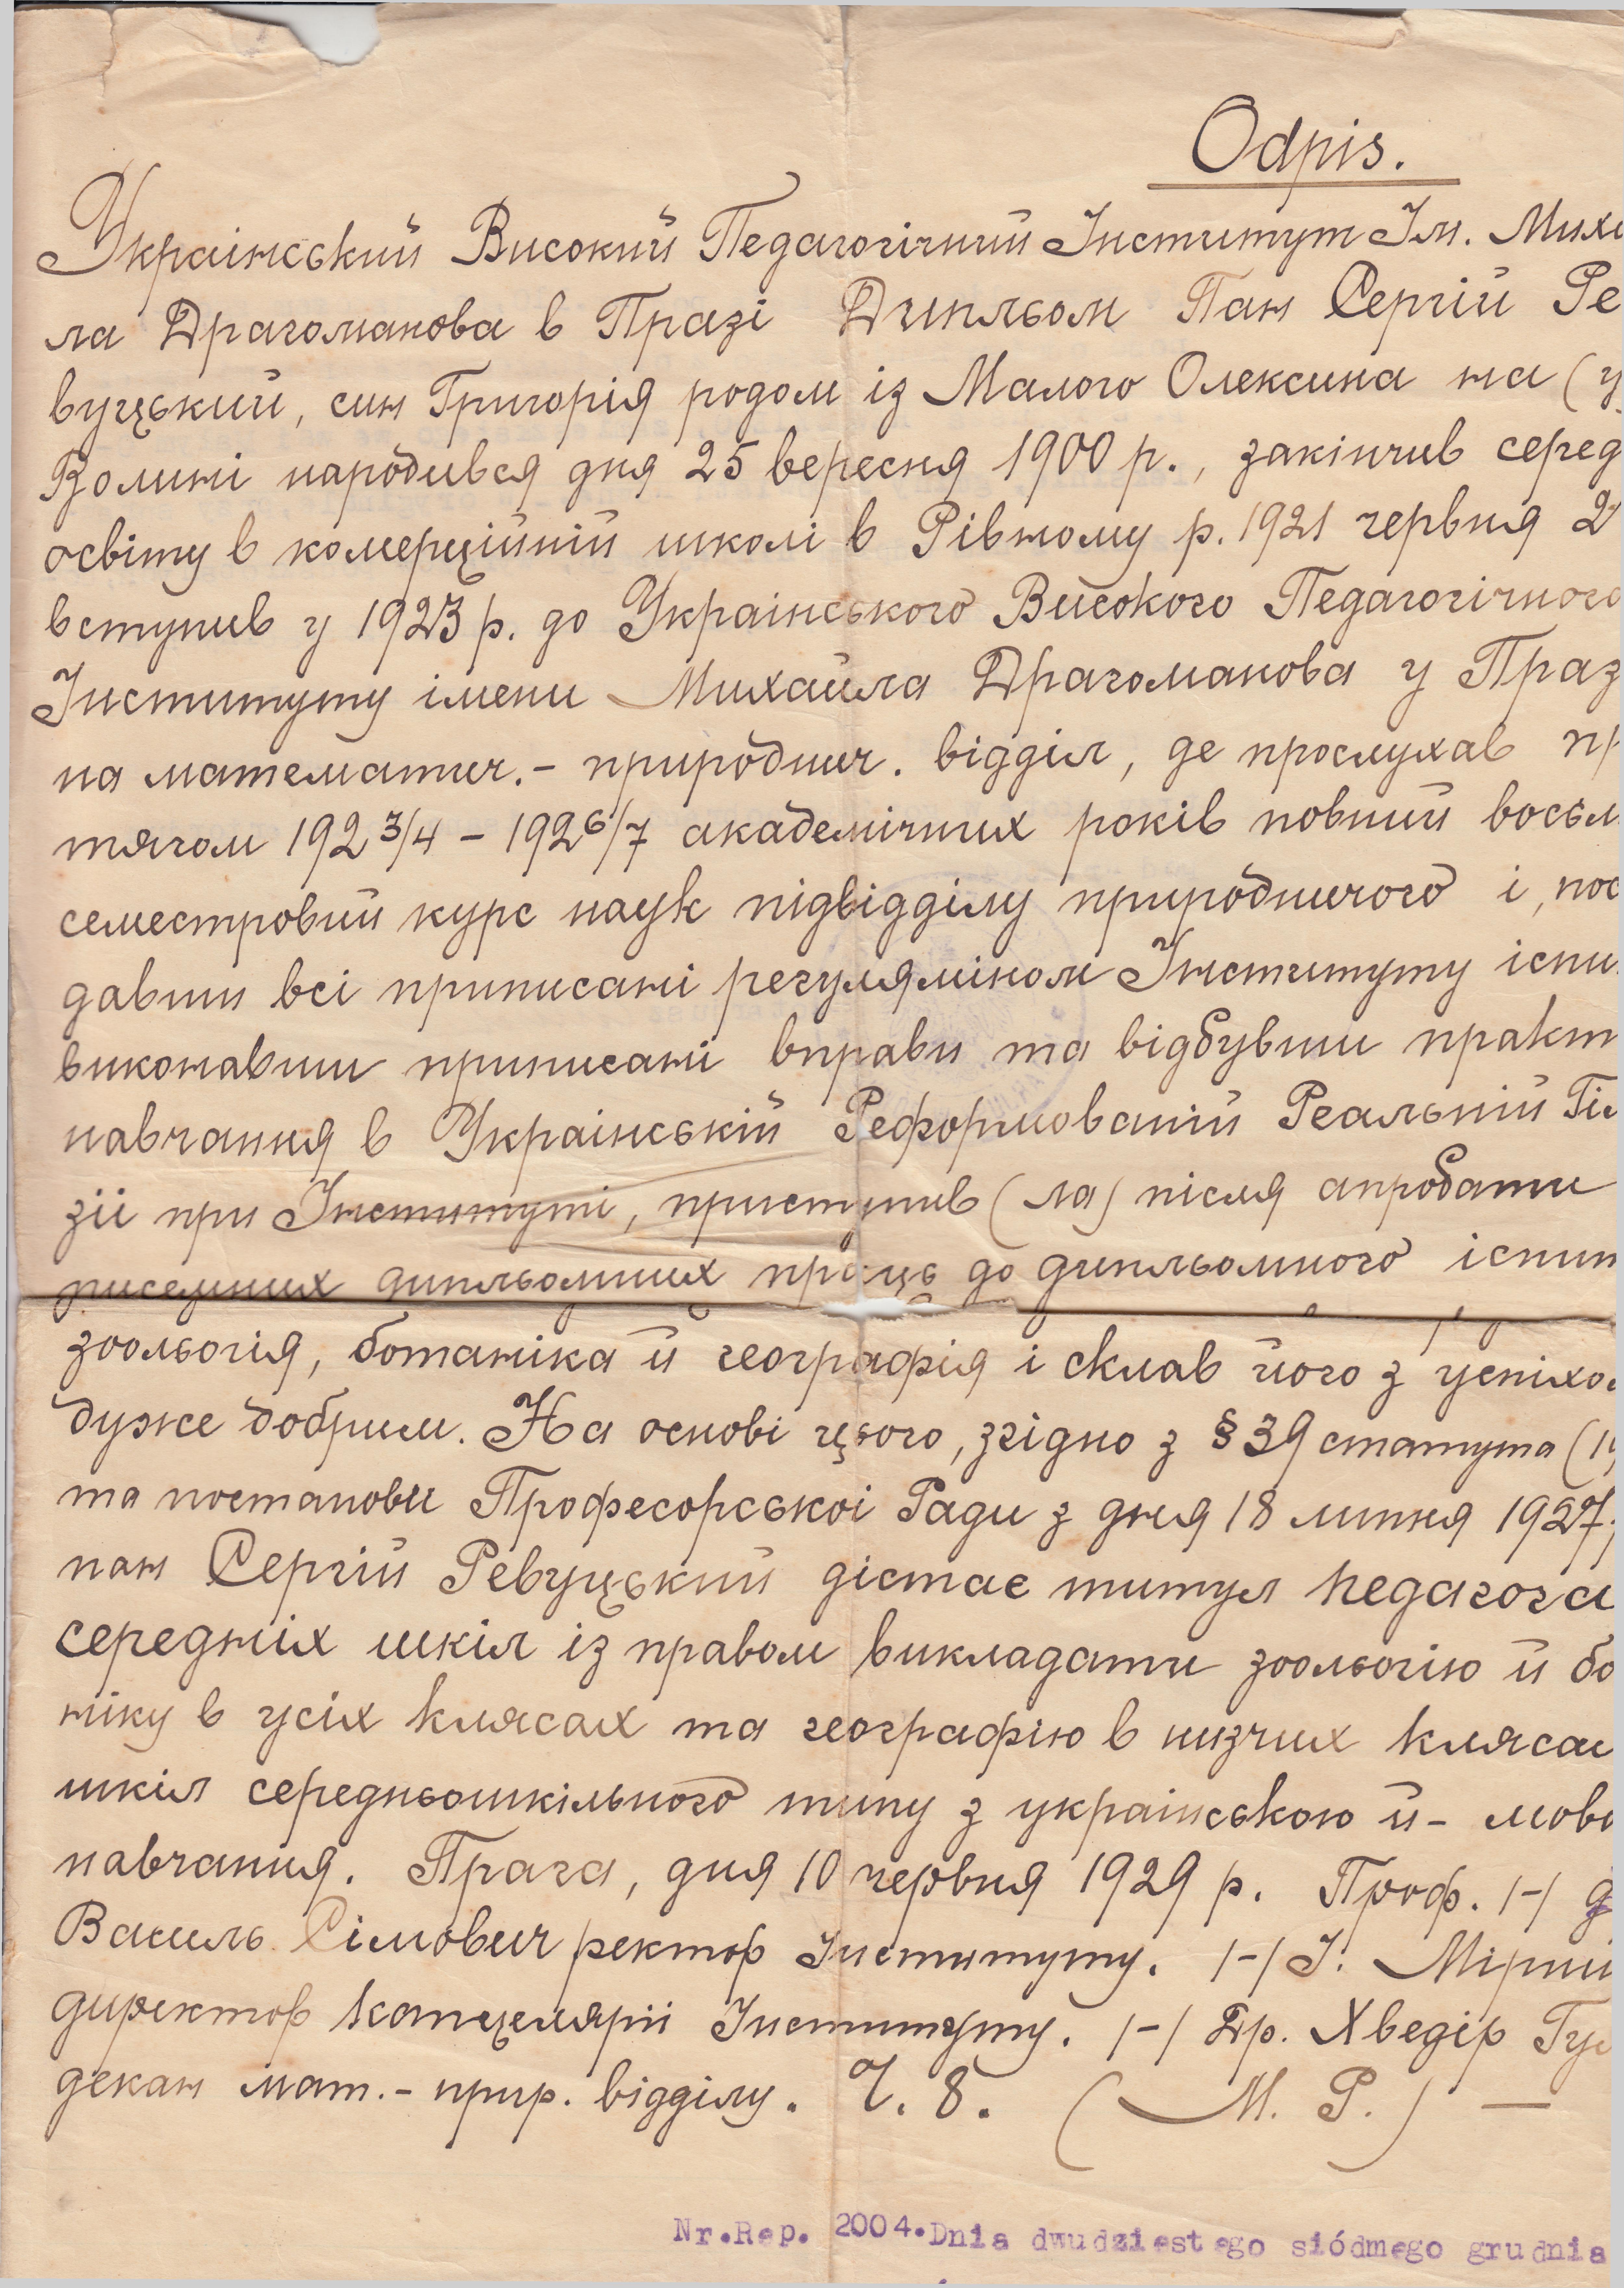 Odpis.
Украінський Високий Педагогічний Інститут Ім. Михай
ла Драгоманова в Празі Дипльом Пан Сергій Ре
вуцький, син Григорія родом із Малого Олексина на (у
Волині народився дня 25 вересня 1900 р., закінчив серед
освіту в комерційній школі в Рівному р. 1921 червня 2
вступив у 1923 р. до Украінського Високого Педагогічного
Інституту імени Михайла Драгоманова у Праз
на математич.- природнич. відділ, де прослухав пр
тягом 1923/4 - 1926/7 академічних років повний восьм
семестровий курс наук підвідділу природничого і, пос
давши всі приписані регуляміном Інституту іспи
виконавши приписані вправи та відбувши практ
навчання в Украінській Реформованій Реальній Гім
зіі при Інституті, приступив (ла) після апробати
писемних дипльомних праць до дипльомного іспит
зоольогія, ботаніка й географія і склав його з успіхом
дуже добрим. На основі цього, згідно з § 39 статута (19
та постанови Професорськоі Ради з дня 18 липня 1927,
пан Сергій Ревуцький дістає титул педагога
середніх шкіл із правом викладати зоольогію й бо
ніку в усіх клясах та географію в низчих клясах
шкіл середньошкільного типу з украінською й - мово
навчання. Прага, дня 10 червня 1929 р. Проф. /-/ д
Василь Сімович ректор Інституту. /-/ І. Мірний
директор канцеляріі Інституту. /-/ Др. Хведір Гу
декан мат.- прир. відділу. Ч. 8. (М. Р.) —
Nr.Rep. 2004. Dnia dwudziestego siódmego grudnia